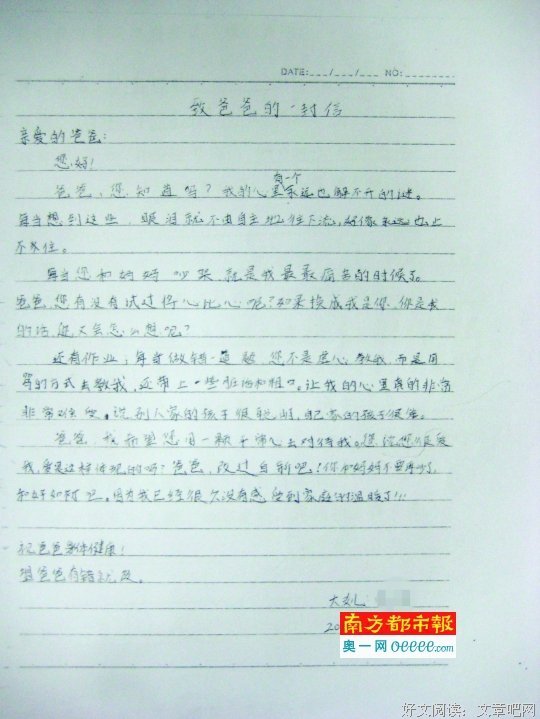 DATE:___/___/___ NO:
致爸爸的一封信
亲爱的爸爸:
您好!
有一个
爸爸,您知道吗?我的心里永远也解不开的谜。
每当想到这些,眼泪就不由自主地往下流,好像永远也止
不住。
每当您和妈妈吵架,就是我最最痛苦的时候了。
爸爸,您有没有试过将心比心呢?如果换成我是您,你是我
的话,您又会怎么想呢?
还有作业,每当做错一道题,您不是虚心教我,而是用
骂的方式去教我,还带上一些脏话和粗口。让我的心里真的非常
非常难受。说别人家的孩子很聪明,自己家的孩子很笨。
爸爸,我希望您用一颗平常心去对待我。您说您很爱
我,爱是这样体现的吗?爸爸,改过自新吧!你和妈妈不要再吵了,
和好如初吧。因为我已经很久没有感受到家庭的温暖了!!!
祝爸爸身体健康!
望爸爸有错就改。
大女儿:
20
南方都市報
奥一网 oeeee.com
好文阅读:文章吧网